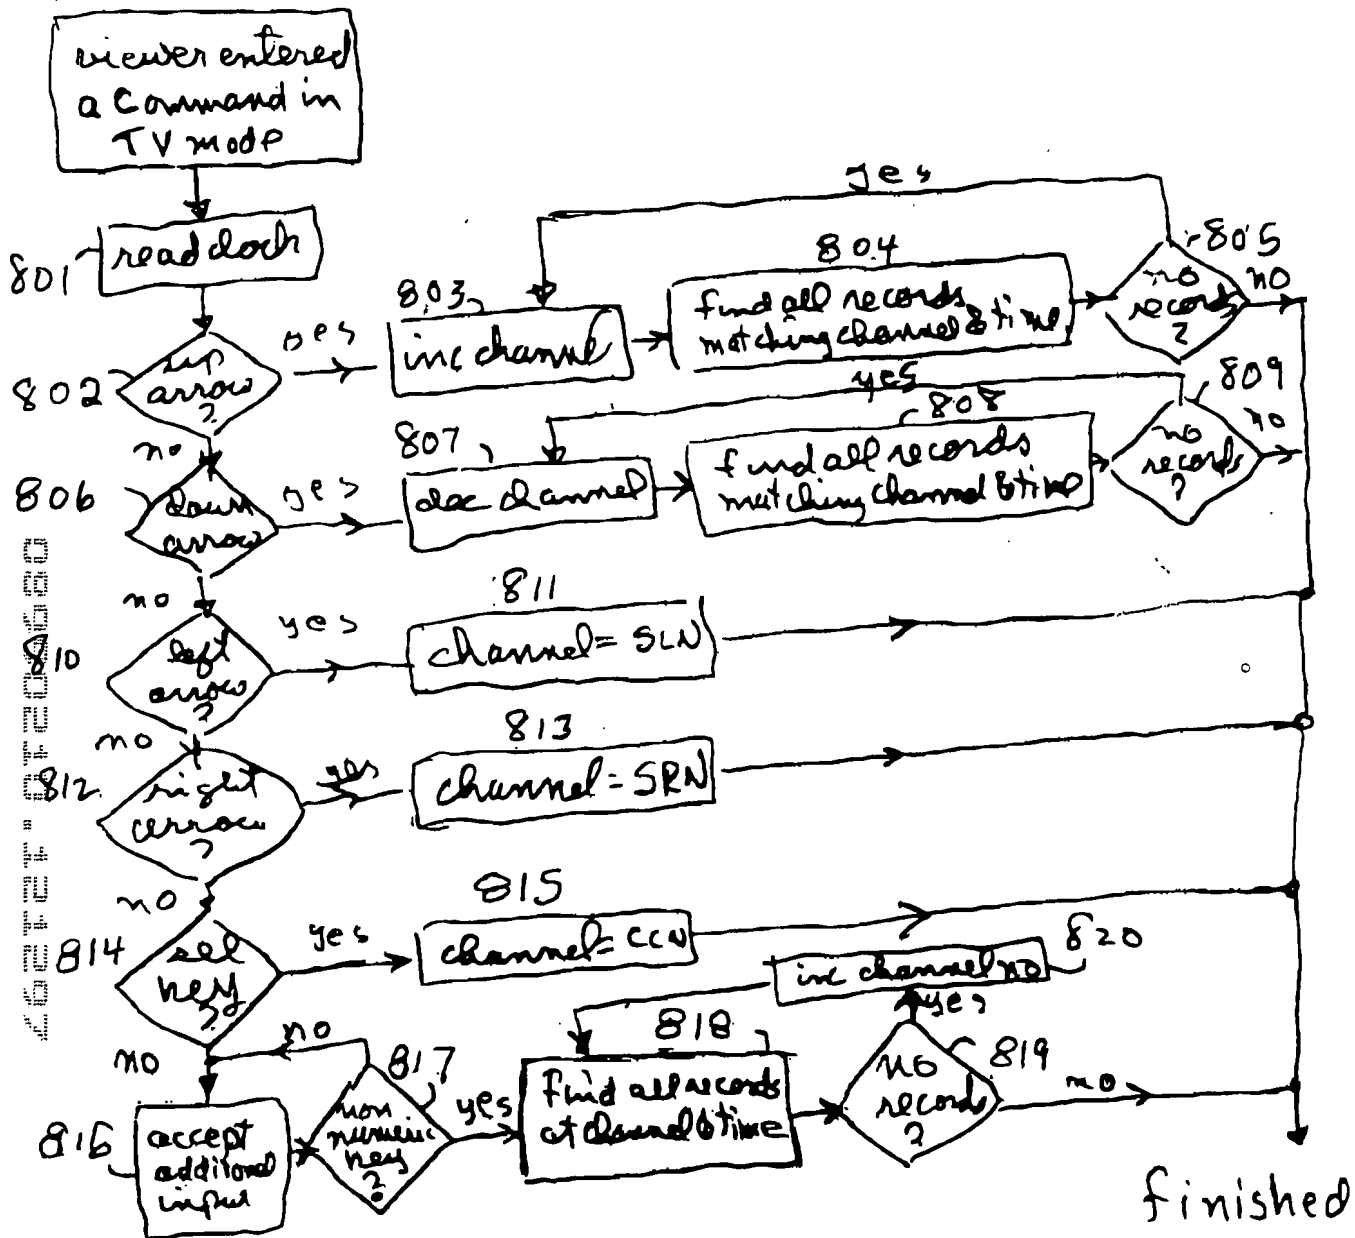 viewer entered
a Command in
TV mode
801
read clock
802
up
arrow
?
yes
803
inc channel
804
find all records
matching channel & time
yes
805
no
records
?
no
no
806
down
arrow
yes
807
dec channel
808
find all records
matching channel & time
yes
809
no
records
?
no
no
810
left
arrow
?
yes
811
channel = SLN
no
812
right
arrow
?
yes
813
channel = SRN
no
814
sel
key
?
yes
815
channel = CCN
no
816
accept
additional
input
no
817
non
numeric
key
?
yes
818
find all records
at channel & time
819
no
records
?
yes
820
inc channel no
no
finished